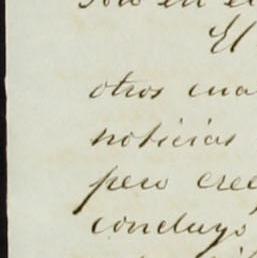 en el
El
otros cua
noticias
pero cree
concluyo